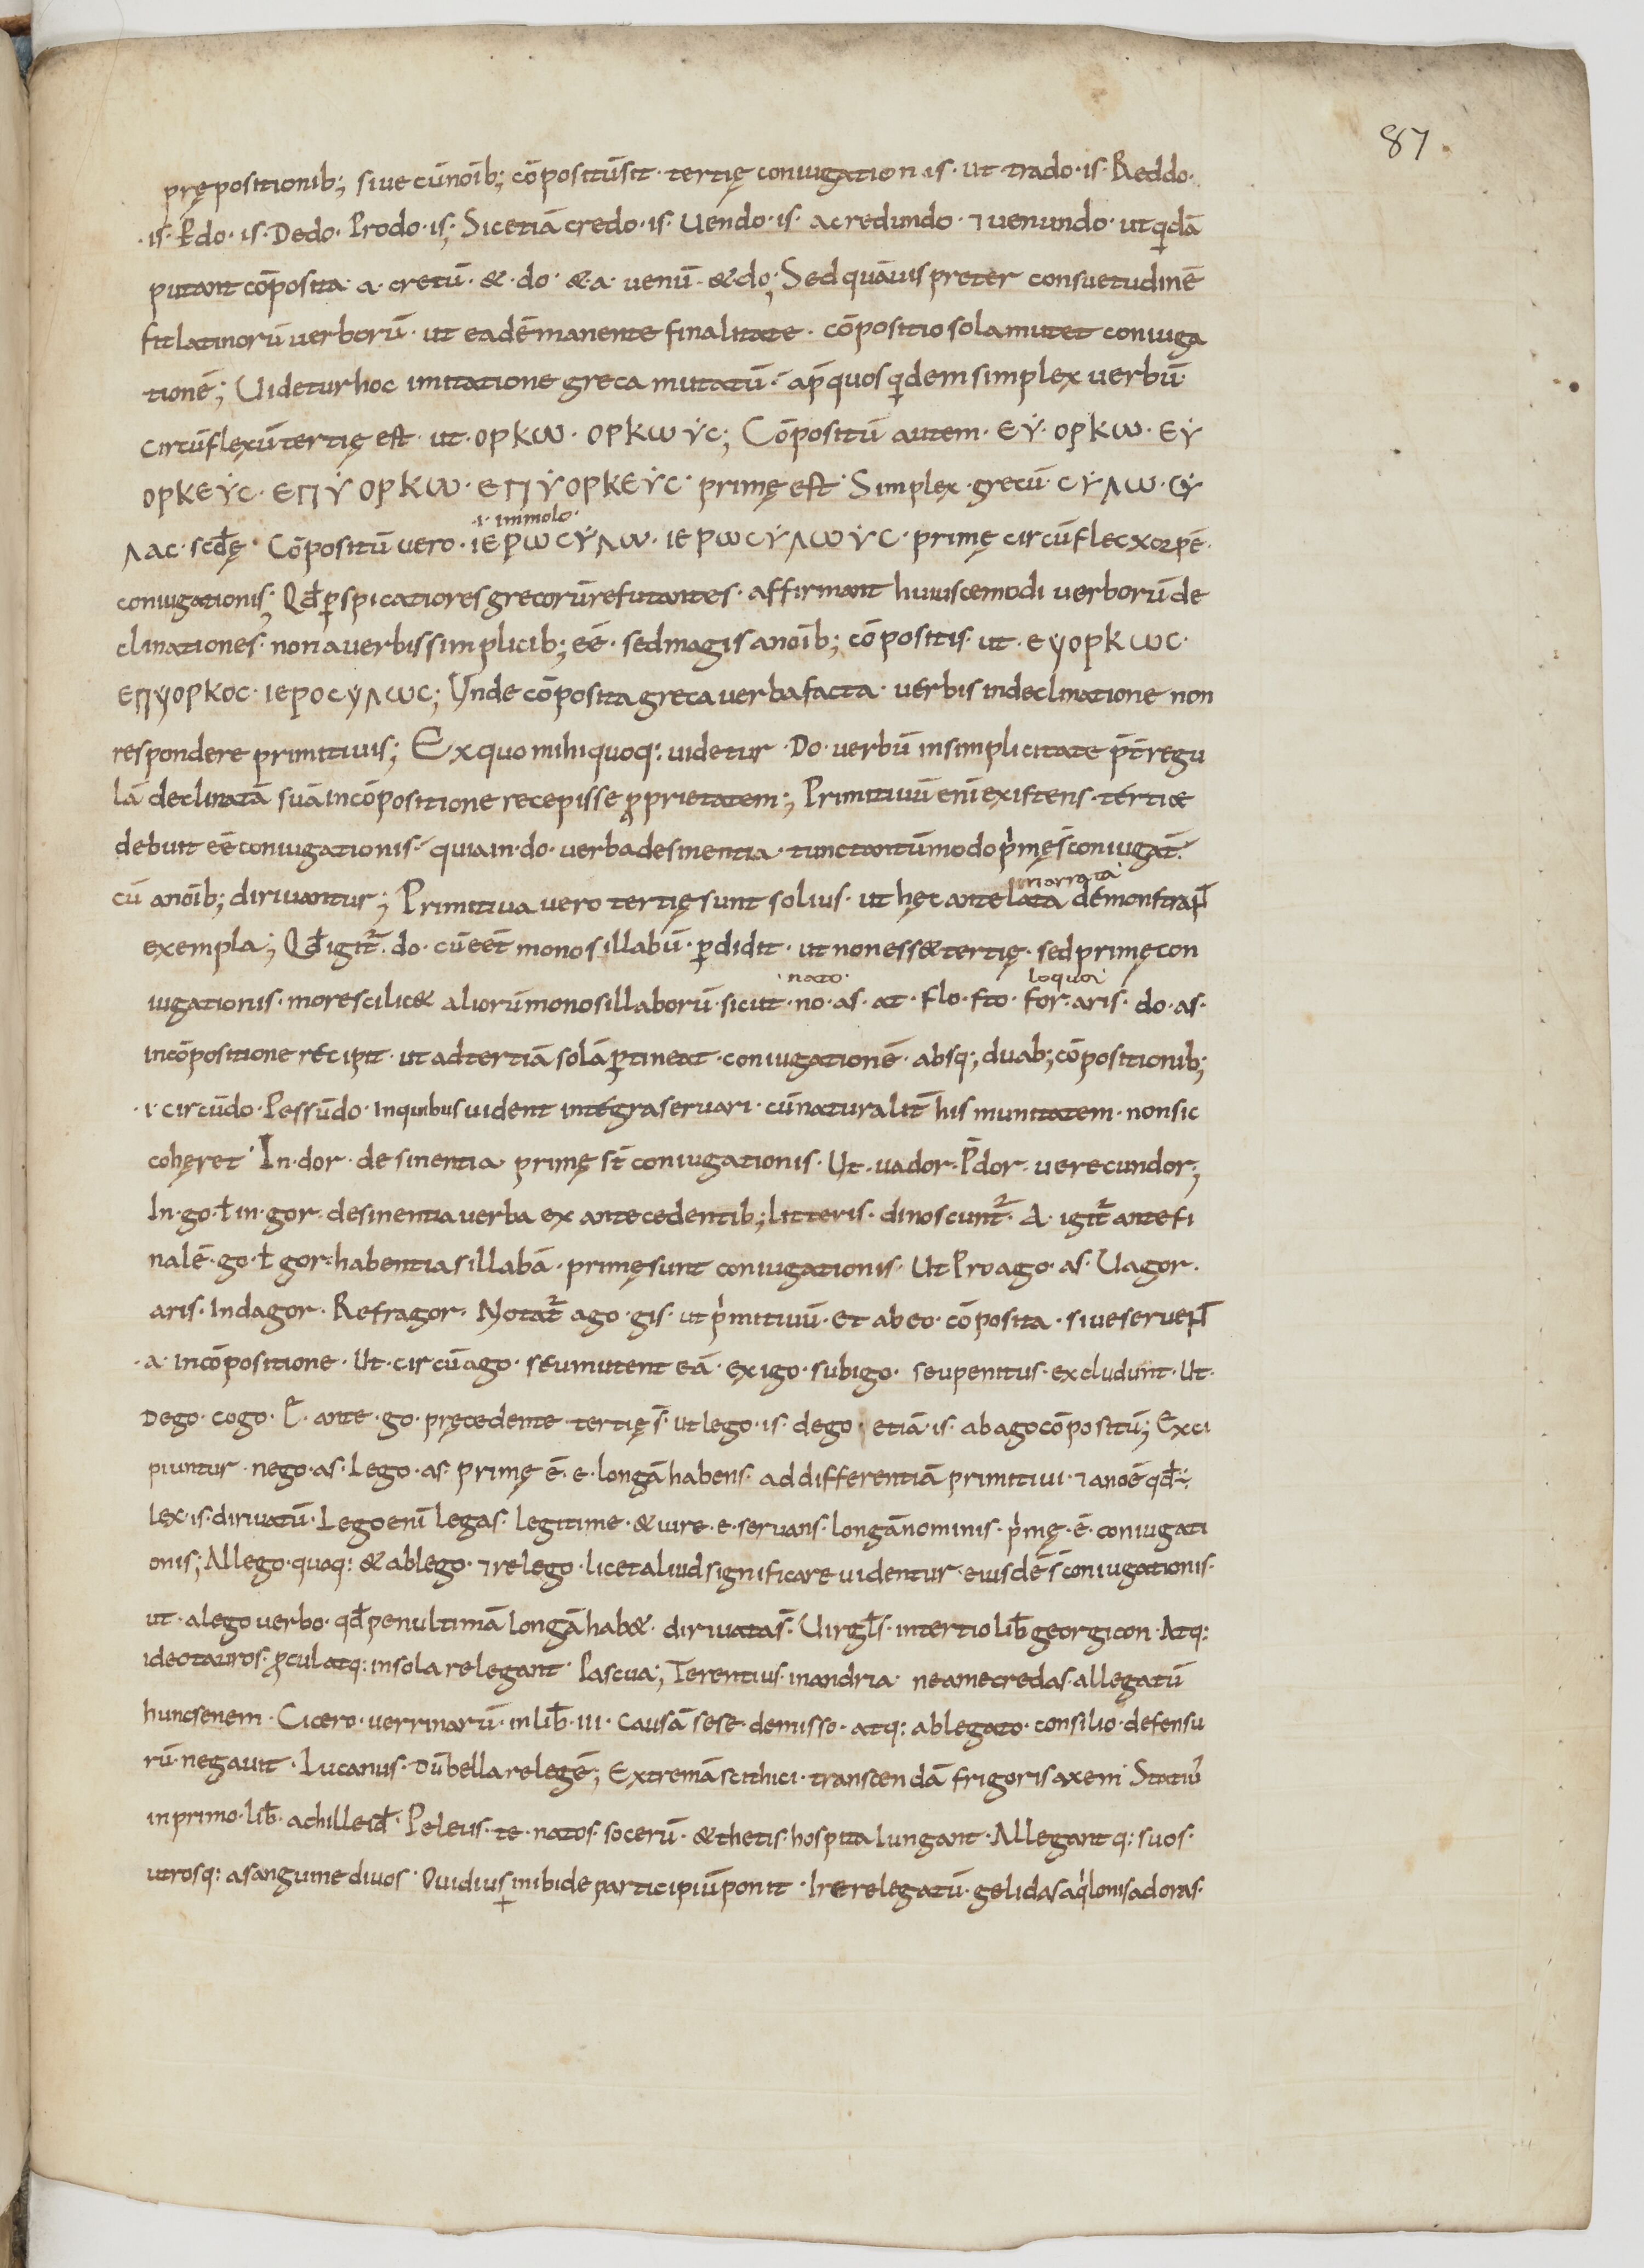 87.
prępositionib; siue cūnoīb; cōpositūsit · tertię coniugationis · ut trado · is · Reddo ·
· is · Edo · is · Dedo · Prodo · is; Sicetiā credo · is · Uendo · is · ac redundo · ⁊ uenundo · utqdā
putant cōposita · a · cretū · & · do · & a · uenū · & do; Sed quāuis preter consuetudinē
fitlatinorū uerborū · ut eadē manente finalitate · cōpositio sola mutet coniuga
tionē; Uidetur hoc imitatione greca mutatū · ap̄ quos qdem simplex uerbū ·
circūflexū tertię est · ut · ορκω · ορκωẏc; Cōpositū autem · εẏ · ορκω · εẏ
ορκεẏc · επẏορκω · επẏορκεẏc · primę est · Simplex · grecū · cẏλω · cẏ
· i · immolo ·
λac · scđę · Cōpositū uero · ιερωcẏλω · ιερωcẏλωẏc · primę circūflecxorpē ·
coniugationis; Qđ ꝑspicatiores grecorū refutantes · affirmant huiuscemodi uerborū de
clinationes · non a uerbis simplicib; eē · sed magis a noīb; cōpositis · ut · εyορκωc ·
επyορκοc · ιεροcyλωc; Unde cōposita greca uerba facta · uerbis in declinatione non
respondere primitiuis; Ex quo mihi quoq: uidetur · Do · uerbū in simplicitate p̄t regu
lā declinatā suā incōpositione recepisse ꝓprietatem; Primitiuū enī existens · tertiæ
debuit eē coniugationis · quia in · do · uerba desinentia · tunc tantū modo pmę s̄ coniugat̄ ·
cū a noīb; diriuantur; Primitiua uero tertię sunt solius · ut hęc ante lata demonstrap̄
narrata
exempla; Qđ igit · do · cū eēt mono sillabū · ꝑdidit · ut non ess& tertię · sed primę con
· nato · loquor
iugationis · more scilic& aliorū mono sillaborū · sicut · no · as · at · flo · sto · for · aris · do · as ·
incōpositione recipit · ut ad tertiā solā ꝑtineat · coniugationē · absq; duab; cōpositionib;
· i · circūdo · Pessūdo · In quibus uident integra seruari · cū naturalit̄ his munitatem · non sic
cohęret · In · dor · desinentia primę s̄t coniugationis · Ut · uador · P̄dor · uerecundor;
In · go · ł in · gor · desinentia uerba ex antecedentib; litteris · dinoscunt · A · igit ante fi
nalē · go · ł gor · habentia sillabā · primę sunt coniugationis · Ut Proago · as · Uagor ·
aris · Indagor · Refragor · Notat ago · gis · ut pmitiuū · et ab eo · cōposita · siue seruep̄
· a · incōpositione · Ut · circūago · seu mutent eā · exigo · subigo · seu penitus · excludunt · Ut ·
Dego · cogo · E · ante · go · pręcedente tertię s̄ · ut lego · is · dego etiā · is · ab ago cōpositū; Exci
piuntur · nego · as · Lego · as · primę ē · e · longā habens · ad differentiam primitiui · ⁊ a noē qđ ·
lex · is · diriuatū · Lego enī legas · legitime · & iure · e · seruans · longā nominis · pmę · ē · coniugati
onis; Allego · quoq: & ablego · ⁊ relego · licet aliud significare uidentur · eiusdē s̄ coniugationis ·
ut · a lego uerbo · qđ penultimā longā hab& · diriuata s̄ · Uirgł̄s · in tertio lib̄ georgicon · Atq:
ideo tauros · ꝓcul atq: in sola relegant · Pascua; Terentius · in andria · ne a me credas · allegatū
hunc senem · Cicero · uerrinarū · in lib̄ · iii · causā sese · demisso · atq: ablegato · consilio · defensu
rū · negauit · Lucanus · Dū bella relegē; Extremā scithici · transcendā frigoris axem · Statius
in primo · lib̄ · achilleiđ · Peleus · te · natos · socerū · & thetis · hospita Iungant · Allegantq: suos ·
utrosq: a sanguine diuos · Ouidius in ibide participiū ponit · Ire relegatū · gelidas aqlonis ad oras ·